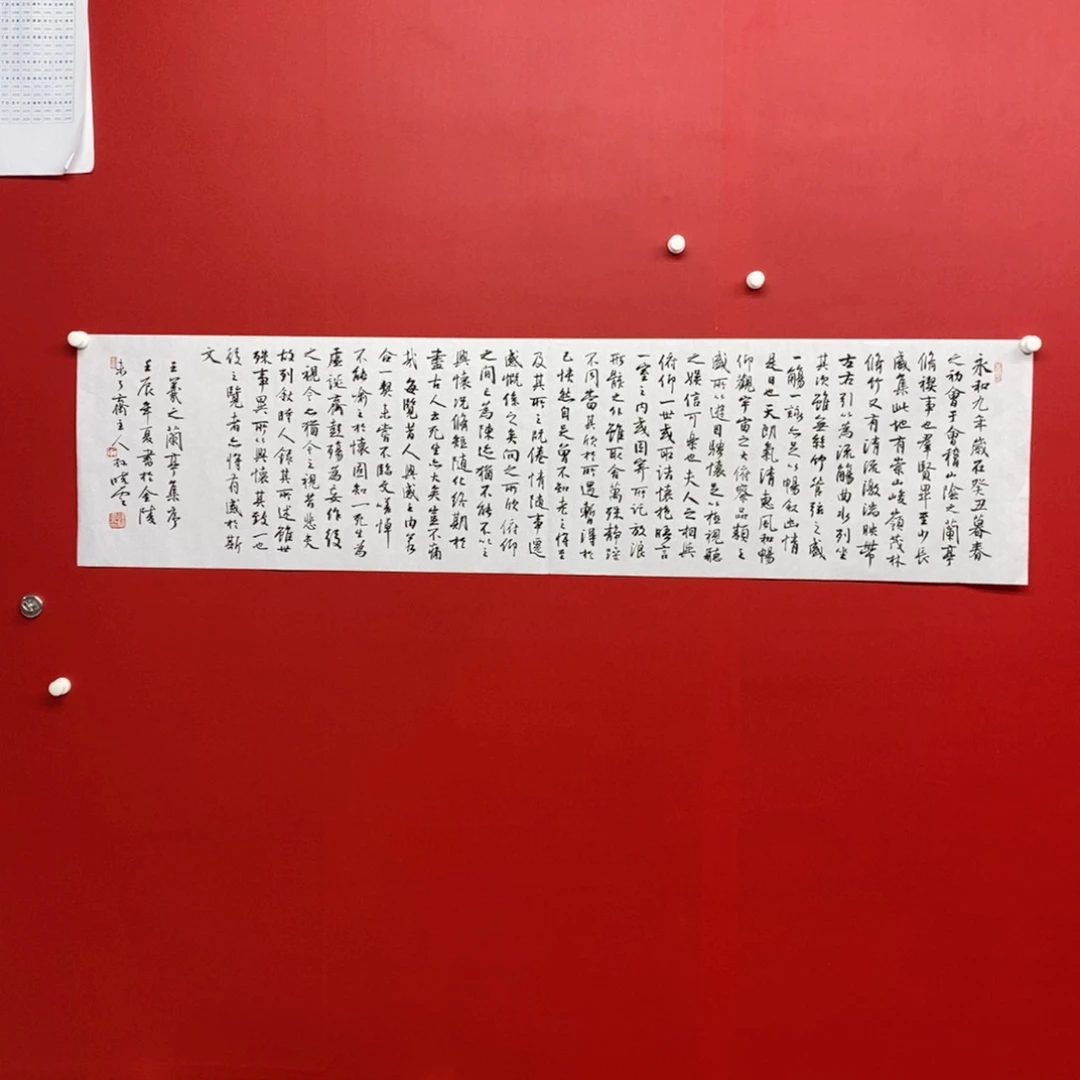 永和九年歲在癸丑暮春
之初會于會稽山陰之蘭亭
脩禊事也羣賢畢至少長
咸集此地有崇山峻嶺茂林
脩竹又有清流激湍映帶
左右引以為流觴曲水列坐
其次雖無絲竹管弦之盛
一觴一詠亦足以暢敘幽情
是日也天朗氣清惠風和暢
仰觀宇宙之大俯察品類之
盛所以遊目騁懷足以極視聽
之娛信可樂也夫人之相與
俯仰一世或取諸懷抱晤言
一室之內或因寄所託放浪
形骸之外雖取舍萬殊靜躁
不同當其欣於所遇暫得於
己怏然自足曾不知老之將至
及其所之既倦情隨事遷
感慨係之矣向之所欣俯仰
之間已為陳迹猶不能不以之
興懷況脩短隨化終期於
盡古人云死生亦大矣豈不痛
哉每覽昔人興感之由若
合一契未嘗不臨文嗟悼
不能喻之於懷固知一死生為
虛誕齊彭殤為妄作後
之視今亦猶今之視昔悲夫
故列敘時人錄其所述雖世
殊事異所以興懷其致一也
後之覽者亦將有感於斯
文
王羲之蘭亭集序
壬辰年夏書於金陵
齋主人孫曉雲